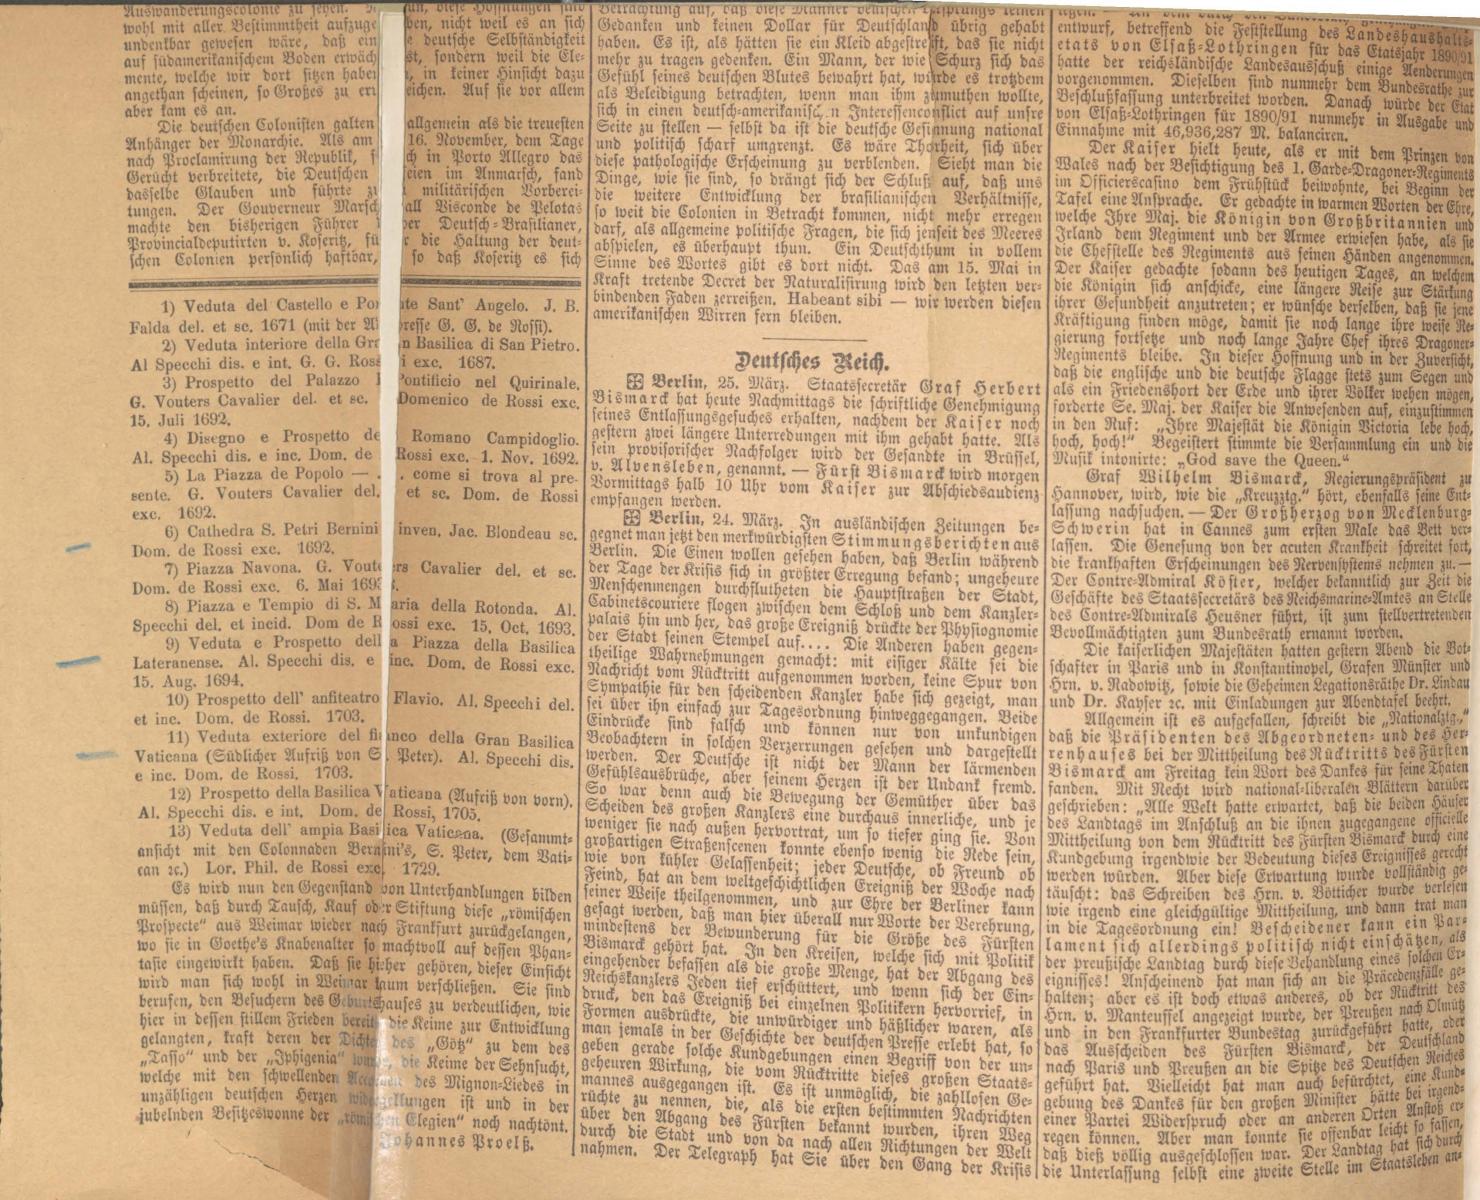 Auswanderungscolonie zu sehen.
wohl mit aller Bestimmtheit aufzuge ben, nicht weil es an sich
undenkbar gewesen wäre, daß ein deutsche Selbständigkeit
auf südamerikanischem Boden erwäch st, sondern weil die Ele-
mente, welche wir dort sitzen haben, in keiner Hinsicht dazu
angethan scheinen, so Großes zu erreichen. Auf sie vor allem
aber kam es an.
Die deutschen Colonisten galten allgemein als die treuesten
Anhänger der Monarchie. Als am 16. November, dem Tage
nach Proclamirung der Republik, sich in Porto Allegro das
Gerücht verbreitete, die Deutschen seien im Anmarsch, fand
dasselbe Glauben und führte zu militärischen Vorberei-
tungen. Der Gouverneur Marschall Visconde de Pelotas
machte den bisherigen Führer der Deutsch-Brasilianer,
Provincialdeputirten v. Koseritz, für die Haltung der deut-
schen Colonien persönlich haftbar, so daß Koseritz es sich
1) Veduta del Castello e Ponte Sant' Angelo. J. B.
Falda del. et sc. 1671 (mit der Adresse G. G. de Rossi).
2) Veduta interiore della Gran Basilica di San Pietro.
Al Specchi dis. e int. G. G. Rossi exc. 1687.
3) Prospetto del Palazzo Pontificio nel Quirinale.
G. Vouters Cavalier del. et sc. Domenico de Rossi exc.
15. Juli 1692.
4) Disegno e Prospetto de Romano Campidoglio.
Al. Specchi dis. e inc. Dom. de Rossi exc. 1. Nov. 1692.
5) La Piazza de Popolo — . . come si trova al pre-
sente. G. Vouters Cavalier del. et sc. Dom. de Rossi
exc. 1692.
6) Cathedra S. Petri Bernini inven. Jac. Blondeau sc.
Dom. de Rossi exc. 1692.
7) Piazza Navona. G. Vouters Cavalier del. et sc.
Dom. de Rossi exc. 6. Mai 1693.
8) Piazza e Tempio di S. Maria della Rotonda. Al.
Specchi del. et incid. Dom de Rossi exc. 15. Oct. 1693.
9) Veduta e Prospetto della Piazza della Basilica
Lateranense. Al. Specchi dis. e inc. Dom. de Rossi exc.
15. Aug. 1694.
10) Prospetto dell' anfiteatro Flavio. Al. Specchi del.
et inc. Dom. de Rossi. 1703.
11) Veduta exteriore del fianco della Gran Basilica
Vaticana (Südlicher Aufriß von S. Peter). Al. Specchi dis.
e inc. Dom. de Rossi. 1703.
12) Prospetto della Basilica Vaticana (Aufriß von vorn).
Al. Specchi dis. e int. Dom. de Rossi, 1705.
13) Veduta dell' ampia Basilica Vaticana. (Gesammt-
ansicht mit den Colonnaden Bernini's, S. Peter, dem Vati-
can ꝛc.) Lor. Phil. de Rossi exc. 1729.
Es wird nun den Gegenstand von Unterhandlungen bilden
müssen, daß durch Tausch, Kauf oder Stiftung diese „römischen
Prospecte“ aus Weimar wieder nach Frankfurt zurückgelangen,
wo sie in Goethe's Knabenalter so machtvoll auf dessen Phan-
tasie eingewirkt haben. Daß sie hieher gehören, dieser Einsicht
wird man sich wohl in Weimar kaum verschließen. Sie sind
berufen, den Besuchern des Geburtshauses zu verdeutlichen, wie
hier in dessen stillem Frieden bereits die Keime zur Entwicklung
gelangten, kraft deren der Dichter des „Götz“ zu dem des
„Tasso“ und der „Iphigenia“ wurde, die Keime der Sehnsucht,
welche mit den schwellenden Accorden des Mignon-Liedes in
unzähligen deutschen Herzen widerzuklungen ist und in der
jubelnden Besitzeswonne der „römischen Elegien“ noch nachtönt.
Johannes Proelß.
Betrachtung auf, daß diese Männer deutschen Ursprungs keinen
Gedanken und keinen Dollar für Deutschland übrig gehabt
haben. Es ist, als hätten sie ein Kleid abgestreift, das sie nicht
mehr zu tragen gedenken. Ein Mann, der wie Schurz sich das
Gefühl seines deutschen Blutes bewahrt hat, würde es trotzdem
als Beleidigung betrachten, wenn man ihm zumuthen wollte,
sich in einen deutsch-amerikanischen Interessenconflict auf unsre
Seite zu stellen — selbst da ist die deutsche Gesinnung national
und politisch scharf umgrenzt. Es wäre Thorheit, sich über
diese pathologische Erscheinung zu verblenden. Sieht man die
Dinge, wie sie sind, so drängt sich der Schluß auf, daß uns
die weitere Entwicklung der brasilianischen Verhältnisse,
so weit die Colonien in Betracht kommen, nicht mehr erregen
darf, als allgemeine politische Fragen, die sich jenseit des Meeres
abspielen, es überhaupt thun. Ein Deutschthum in vollem
Sinne des Wortes gibt es dort nicht. Das am 15. Mai in
Kraft tretende Decret der Naturalisirung wird den letzten ver-
bindenden Faden zerreißen. Habeant sibi — wir werden diesen
amerikanischen Wirren fern bleiben.
Deutsches Reich.
Berlin, 25. März. Staatssecretär Graf Herbert
Bismarck hat heute Nachmittags die schriftliche Genehmigung
seines Entlassungsgesuches erhalten, nachdem der Kaiser noch
gestern zwei längere Unterredungen mit ihm gehabt hatte. Als
sein provisorischer Nachfolger wird der Gesandte in Brüssel,
v. Alvensleben, genannt. — Fürst Bismarck wird morgen
Vormittags halb 10 Uhr vom Kaiser zur Abschiedsaudienz
empfangen werden.
Berlin, 24. März. In ausländischen Zeitungen be-
gegnet man jetzt den merkwürdigsten Stimmungsberichten aus
Berlin. Die Einen wollen gesehen haben, daß Berlin während
der Tage der Krisis sich in größter Erregung befand; ungeheure
Menschenmengen durchflutheten die Hauptstraßen der Stadt,
Cabinetscouriere flogen zwischen dem Schloß und dem Kanzler-
palais hin und her, das große Ereigniß drückte der Physiognomie
der Stadt seinen Stempel auf.... Die Anderen haben gegen-
theilige Wahrnehmungen gemacht: mit eisiger Kälte sei die
Nachricht vom Rücktritt aufgenommen worden, keine Spur von
Sympathie für den scheidenden Kanzler habe sich gezeigt, man
sei über ihn einfach zur Tagesordnung hinweggegangen. Beide
Eindrücke sind falsch und können nur von unkundigen
Beobachtern in solchen Verzerrungen gesehen und dargestellt
werden. Der Deutsche ist nicht der Mann der lärmenden
Gefühlsausbrüche, aber seinem Herzen ist der Undank fremd.
So war denn auch die Bewegung der Gemüther über das
Scheiden des großen Kanzlers eine durchaus innerliche, und je
weniger sie nach außen hervortrat, um so tiefer ging sie. Von
großartigen Straßenscenen konnte ebenso wenig die Rede sein,
wie von kühler Gelassenheit; jeder Deutsche, ob Freund ob
Feind, hat an dem weltgeschichtlichen Ereigniß der Woche nach
seiner Weise theilgenommen, und zur Ehre der Berliner kann
gesagt werden, daß man hier überall nur Worte der Verehrung,
mindestens der Bewunderung für die Größe des Fürsten
Bismarck gehört hat. In den Kreisen, welche sich mit Politik
eingehender befassen als die große Menge, hat der Abgang des
Reichskanzlers Jeden tief erschüttert, und wenn sich der Ein-
druck, den das Ereigniß bei einzelnen Politikern hervorrief, in
Formen ausdrückte, die unwürdiger und häßlicher waren, als
man jemals in der Geschichte der deutschen Presse erlebt hat, so
geben gerade solche Kundgebungen einen Begriff von der un-
geheuren Wirkung, die vom Rücktritte dieses großen Staats-
mannes ausgegangen ist. Es ist unmöglich, die zahllosen Ge-
rüchte zu nennen, die, als die ersten bestimmten Nachrichten
über den Abgang des Fürsten bekannt wurden, ihren Weg
durch die Stadt und von da nach allen Richtungen der Welt
nahmen. Der Telegraph hat Sie über den Gang der Krisis
entwurf, betreffend die Feststellung des Landeshaushalts-
etats von Elsaß-Lothringen für das Etatsjahr 1890/91
hatte der reichsländische Landesausschuß einige Aenderungen
vorgenommen. Dieselben sind nunmehr dem Bundesrathe zur
Beschlußfassung unterbreitet worden. Danach würde der Etat
von Elsaß-Lothringen für 1890/91 nunmehr in Ausgabe und
Einnahme mit 46,936,287 M. balanciren.
Der Kaiser hielt heute, als er mit dem Prinzen von
Wales nach der Besichtigung des 1. Garde-Dragoner-Regiments
im Officierscasino dem Frühstück beiwohnte, bei Beginn der
Tafel eine Ansprache. Er gedachte in warmen Worten der Ehre,
welche Ihre Maj. die Königin von Großbritannien und
Irland dem Regiment und der Armee erwiesen habe, als sie
die Chefstelle des Regiments aus seinen Händen angenommen.
Der Kaiser gedachte sodann des heutigen Tages, an welchem
die Königin sich anschicke, eine längere Reise zur Stärkung
ihrer Gesundheit anzutreten; er wünsche derselben, daß sie jene
Kräftigung finden möge, damit sie noch lange ihre weise Re-
gierung fortsetze und noch lange Jahre Chef ihres Dragoner-
Regiments bleibe. In dieser Hoffnung und in der Zuversicht,
daß die englische und die deutsche Flagge stets zum Segen und
als ein Friedenshort der Erde und ihrer Völker wehen mögen,
forderte Se. Maj. der Kaiser die Anwesenden auf, einzustimmen
in den Ruf: „Ihre Majestät die Königin Victoria lebe hoch,
hoch, hoch!“ Begeistert stimmte die Versammlung ein und die
Musik intonirte: „God save the Queen.“
Graf Wilhelm Bismarck, Regierungspräsident zu
Hannover, wird, wie die „Kreuzztg.“ hört, ebenfalls seine Ent-
lassung nachsuchen. — Der Großherzog von Mecklenburg-
Schwerin hat in Cannes zum ersten Male das Bett ver-
lassen. Die Genesung von der acuten Krankheit schreitet fort,
die krankhaften Erscheinungen des Nervensystems nehmen zu. —
Der Contre-Admiral Köster, welcher bekanntlich zur Zeit die
Geschäfte des Staatssecretärs des Reichsmarine-Amtes an Stelle
des Contre-Admirals Heusner führt, ist zum stellvertretenden
Bevollmächtigten zum Bundesrath ernannt worden.
Die kaiserlichen Majestäten hatten gestern Abend die Bot-
schafter in Paris und in Konstantinopel, Grafen Münster und
Hrn. v. Radowitz, sowie die Geheimen Legationsräthe Dr. Lindau
und Dr. Kayser ꝛc. mit Einladungen zur Abendtafel beehrt.
Allgemein ist es aufgefallen, schreibt die „Nationalztg.,“
daß die Präsidenten des Abgeordneten- und des Her-
renhauses bei der Mittheilung des Rücktritts des Fürsten
Bismarck am Freitag kein Wort des Dankes für seine Thaten
fanden. Mit Recht wird national-liberalen Blättern darüber
geschrieben: „Alle Welt hatte erwartet, daß die beiden Häuser
des Landtags im Anschluß an die ihnen zugegangene officielle
Mittheilung von dem Rücktritt des Fürsten Bismarck durch eine
Kundgebung irgendwie der Bedeutung dieses Ereignisses gerecht
werden würden. Aber diese Erwartung wurde vollständig ge-
täuscht: das Schreiben des Hrn. v. Bötticher wurde verlesen
wie irgend eine gleichgültige Mittheilung, und dann trat man
in die Tagesordnung ein! Bescheidener kann ein Par-
lament sich allerdings politisch nicht einschätzen, als
der preußische Landtag durch diese Behandlung eines solchen Er-
eignisses! Anscheinend hat man sich an die Präcedenzfälle ge-
halten; aber es ist doch etwas anderes, ob der Rücktritt des
Hrn. v. Manteuffel angezeigt wurde, der Preußen nach Olmütz
und in den Frankfurter Bundestag zurückgeführt hatte, oder
das Ausscheiden des Fürsten Bismarck, der Deutschland
nach Paris und Preußen an die Spitze des Deutschen Reiches
geführt hat. Vielleicht hat man auch befürchtet, eine Kund-
gebung des Dankes für den großen Minister hätte bei irgend-
einer Partei Widerspruch oder an anderen Orten Anstoß er-
regen können. Aber man konnte sie offenbar leicht so fassen,
daß dieß völlig ausgeschlossen war. Der Landtag hat sich durch
die Unterlassung selbst eine zweite Stelle im Staatsleben an-